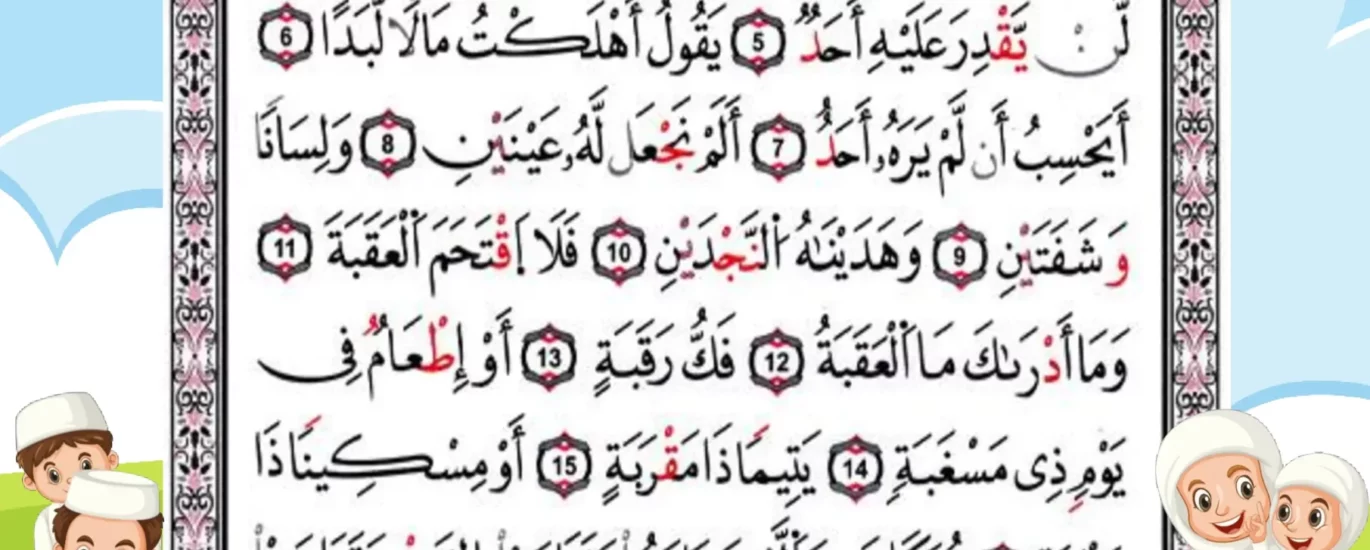 لَّن يَّقْدِرَ عَلَيْهِ أَحَدٌ 5 يَقُولُ أَهْلَكْتُ مَالًا لُّبَدًا 6
أَيَحْسِبُ أَن لَّمْ يَرَهُۥ أَحَدٌ 7 أَلَمْ نَجْعَل لَّهُۥ عَيْنَيْنِ 8 وَلِسَانًا
وَشَفَتَيْنِ 9 وَهَدَيْنَٰهُ ٱلنَّجْدَيْنِ 10 فَلَا ٱقْتَحَمَ ٱلْعَقَبَةَ 11
وَمَا أَدْرَىٰكَ مَا ٱلْعَقَبَةُ 12 فَكُّ رَقَبَةٍ 13 أَوْ إِطْعَامٌ فِى
يَوْمٍ ذِى مَسْغَبَةٍ 14 يَتِيمًا ذَا مَقْرَبَةٍ 15 أَوْ مِسْكِينًا ذَا